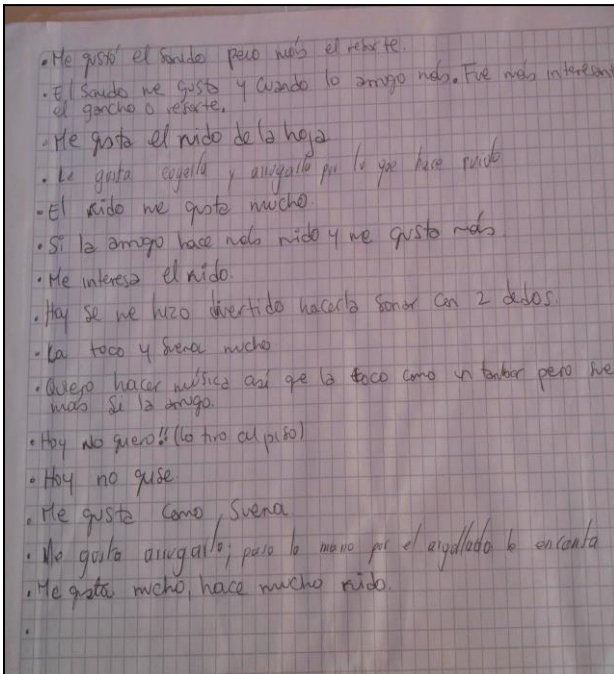 • Me gustó el sonido pero más el resorte.
• El sonido me gusto y cuando lo arrugo más. Fue más interesant
el gancho o resorte.
• Me gusta el ruido de la hoja
• Le gusta cogerlo y arrugarlo por lo que hace ruido
• El ruido me gusta mucho.
• Si la arrugo hace más ruido y me gusta más.
• Me interesa el ruido.
• Hoy se me hizo divertido hacerla sonar con 2 dedos.
• La toco y suena mucho
• Quiero hacer música así que la toco como un tambor pero sue
más si la arrugo.
• Hoy No quiero!! (lo tiro al piso)
• Hoy no quise.
• Me gusta como suena
• Me gusta arrugarlo; paso la mano por el argollado le encanta
• Me gusta mucho, hace mucho ruido.
•